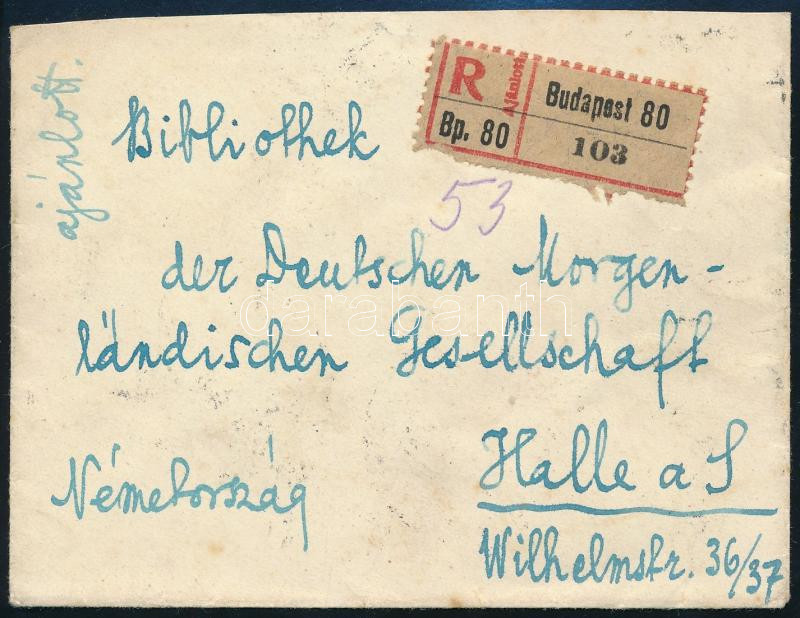 ajánlott.
R
Ajánlott
Budapest 80
Bp. 80
103
Bibliothek
53
der Deutschen Morgen-
ländischen Gesellschaft
darabanth
Halle a S
Németország
Wilhelmstr. 36/37